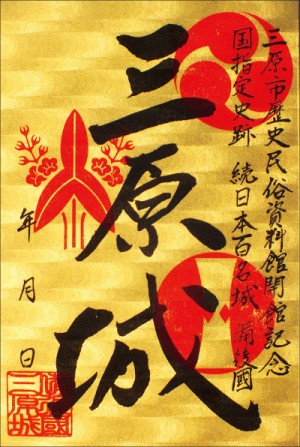 三原市歴史民俗資料館開館記念
国指定史跡 続日本百名城 備後國
三原城
年 月 日
備後國
三原城